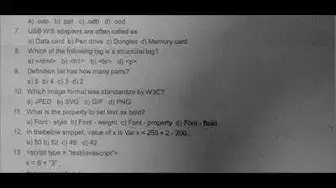 a) .uds b) .ppt c) .odb d) .ood
7. USB Wifi adapters are often called as
a) Data card b) Pen drive c) Dongles d) Memory card
8. Which of the following tag is a structural tag?
a) <html> b) <h1> b) <br> d) <p>
9. Definition list has how many parts?
a) 5 b) 4 c) 3 d) 2
10. Which image format was standardize by W3C?
a) JPED b) SVG c) GIF d) PNG
11. What is the property to set text as bold?
a) Font - style b) Font - weight c) Font - property d) Font - Bold
12. in the below snippet, value of x is Var x = 250 + 2 - 200 ;
a) 50 b) 52 c) 48 d) 42
13. <script type = "text/javascript">
x = 6 + "3" ;